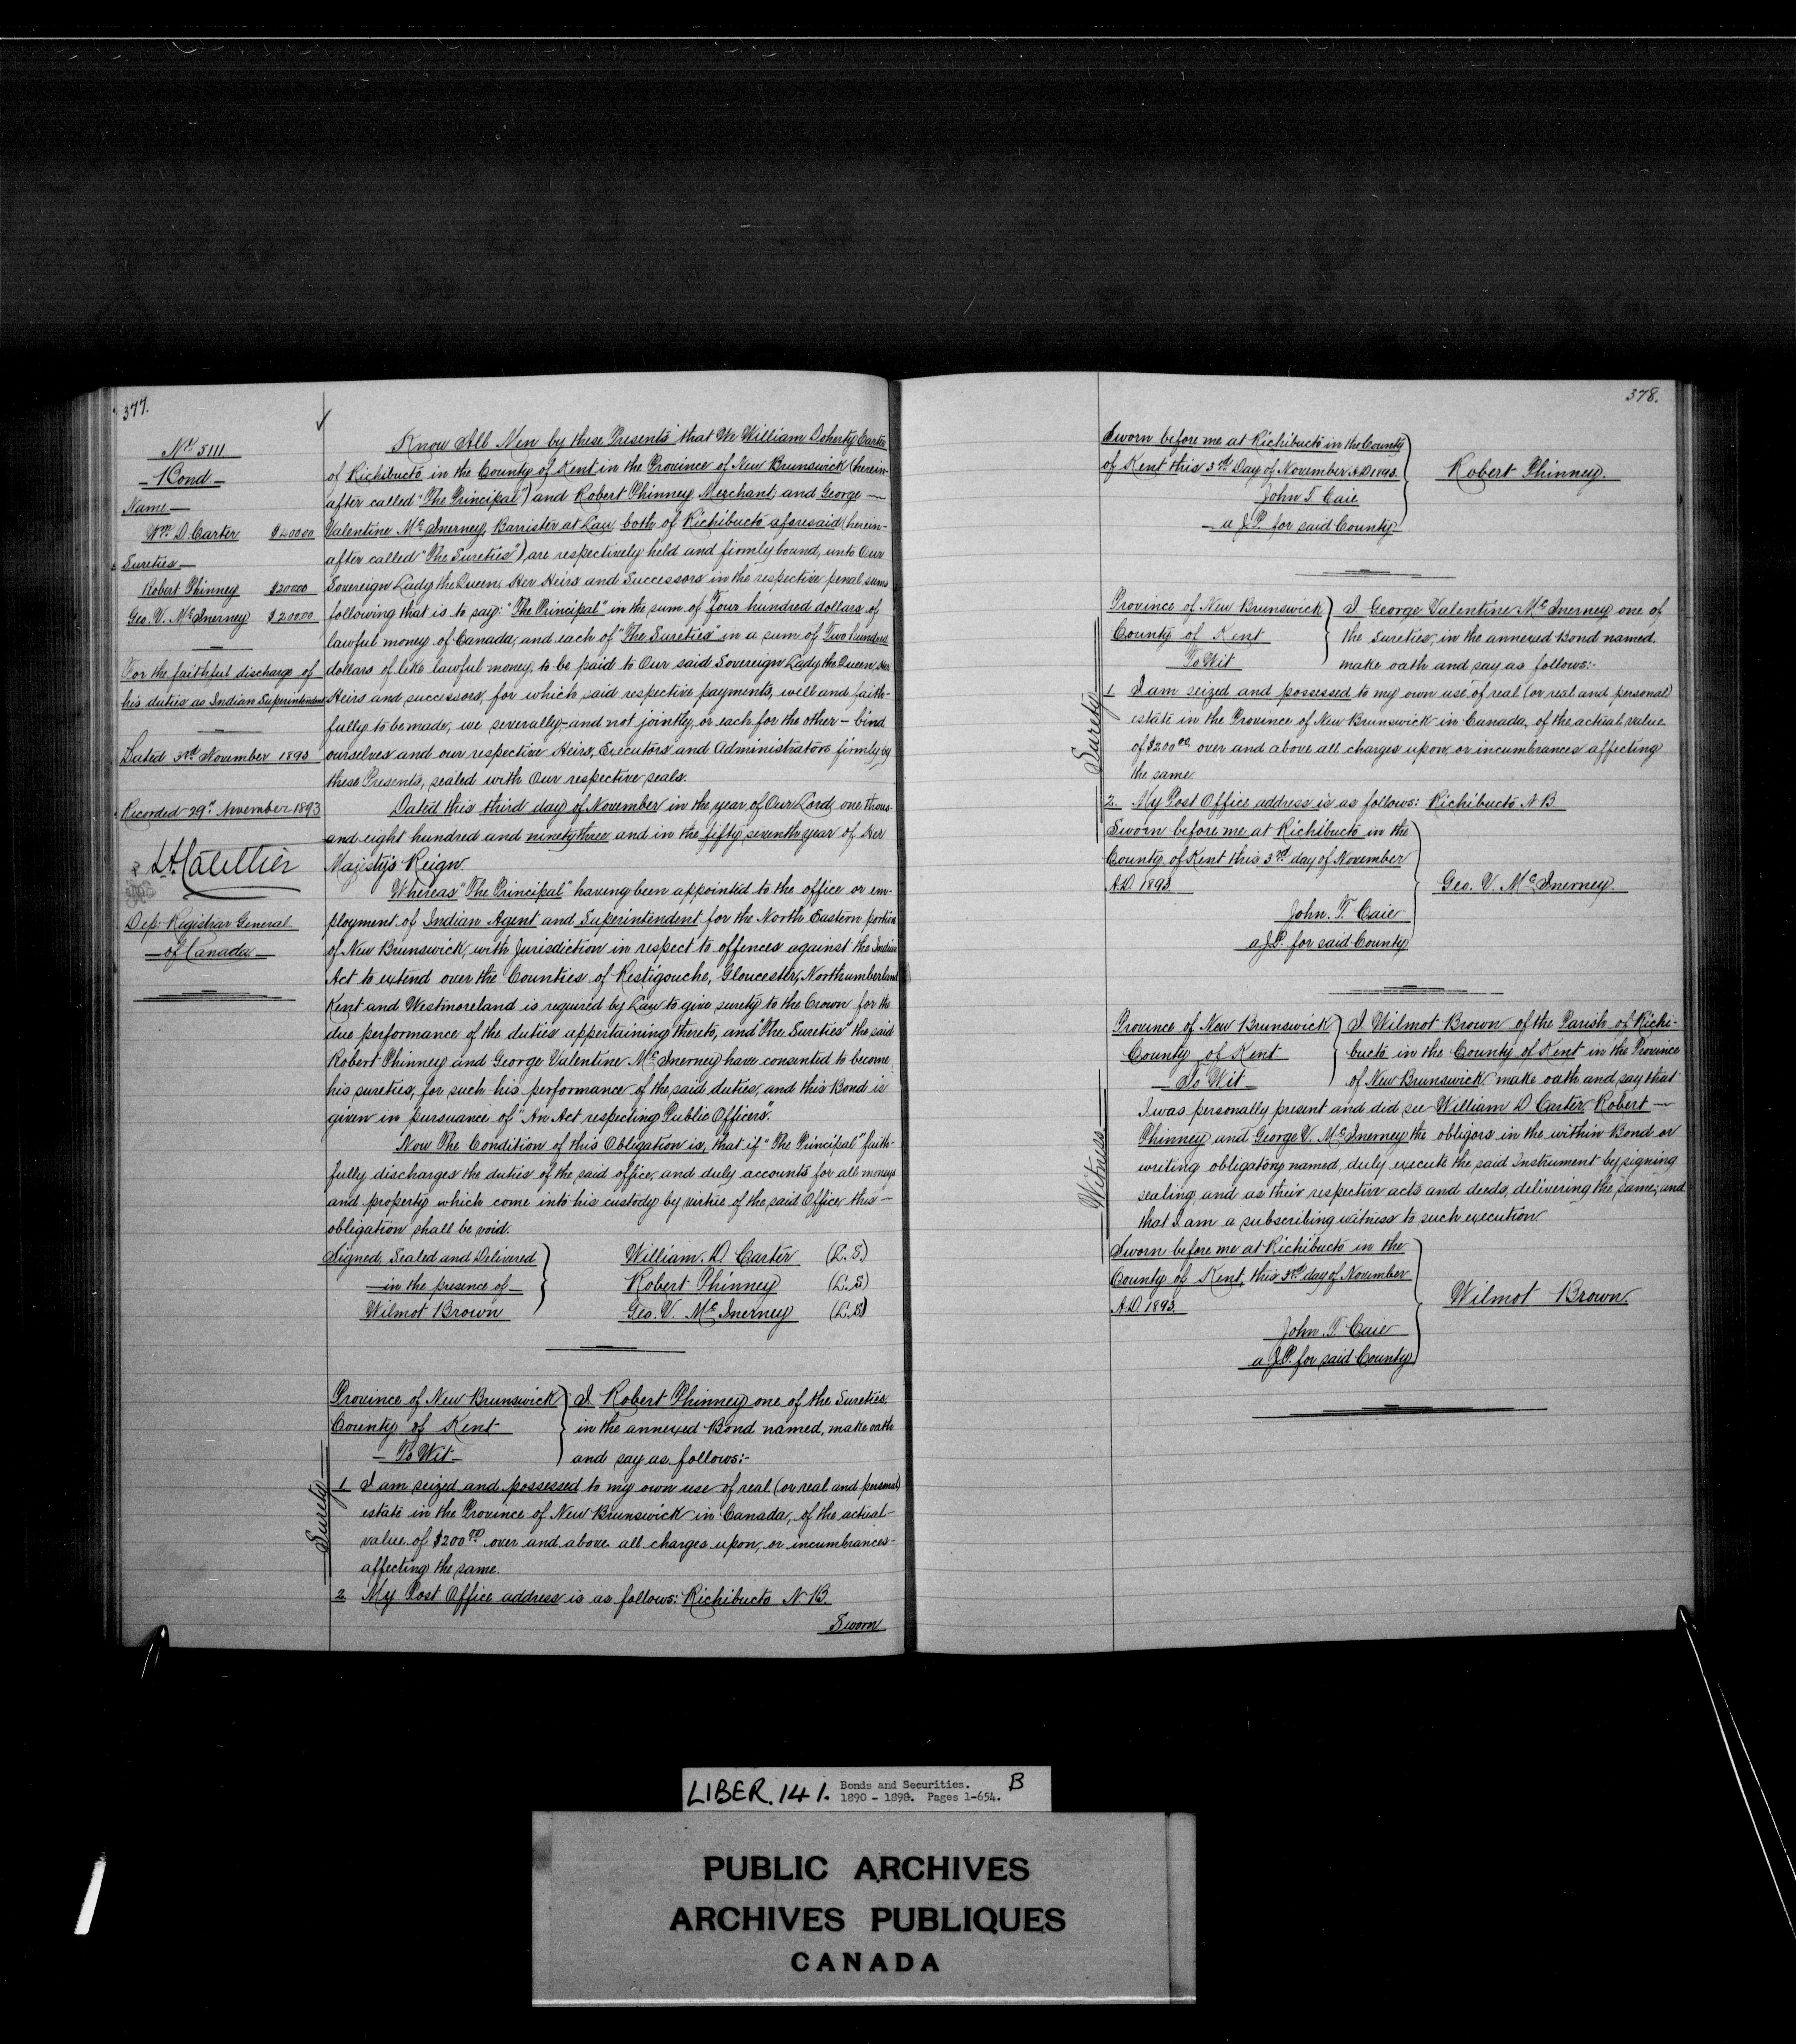 377.
Nº 5111
Bond
Name
Wm D. Carter $400.00
Sureties
Robert Phinney $200.00
Geo. V. McInerney $200.00
For the faithful discharge of
his duties as Indian Superintendent
Dated 3rd November 1893
Recorded 29th November 1893
Dep: Registrar General
of Canada
Know All Men by these Presents that We William Doherty Carter
of Richibucto in the County of Kent in the Province of New Brunswick (herein-
after called "The Principal") and Robert Phinney, Merchant, and George —
Valentine McInerney, Barrister at Law, both of Richibucto aforesaid (herein-
after called "The Sureties") are respectively held and firmly bound, unto Our
Sovereign Lady the Queen, Her Heirs and Successors in the respective penal sums
following that is to say: "The Principal" in the sum of Four hundred dollars of
lawful money of Canada, and each of "The Sureties" in a sum of Two hundred
dollars of like lawful money, to be paid to Our said Sovereign Lady the Queen, Her
Heirs and successors, for which said respective payments, well and faith-
fully to be made, we severally – and not jointly, or each for the other – bind
ourselves and our respective Heirs, Executors and Administrators firmly by
these Presents, sealed with Our respective seals.
Dated this third day of November in the year of Our Lord one thous-
and eight hundred and ninety three and in the fifty seventh year of Her
Majesty's Reign.
Whereas "The Principal" having been appointed to the office or em-
ployment of Indian Agent and Superintendent for the North Eastern portion
of New Brunswick, with Jurisdiction in respect to offences against the Indian
Act to extend over the Counties of Restigouche, Gloucester, Northumberland
Kent and Westmoreland is required by Law to give surety to the Crown for the
due performance of the duties appertaining thereto, and "The Sureties" the said
Robert Phinney and George Valentine McInerney have consented to become
his sureties, for such his performance of the said duties, and this Bond is
given in pursuance of "An Act respecting Public Officers".
Now The Condition of this Obligation is, that if "The Principal" faith-
fully discharges the duties of the said office, and duly accounts for all moneys
and property which come into his custody by virtue of the said Office, this —
obligation shall be void.
Signed, Sealed and Delivered
in the presence of
Wilmot Brown
William. D. Carter (L.S)
Robert Phinney (L.S)
Geo. V. McInerney (L.S)
Province of New Brunswick
County of Kent
To Wit
I Robert Phinney one of the Sureties,
in the annexed Bond named, make oath
and say as follows:-
Surety
1 I am seized and possessed to my own use of real (or real and personal)
estate in the Province of New Brunswick in Canada, of the actual
value of $200.00 over and above all charges upon, or incumbrances
affecting the same.
2 My Post Office address is as follows: Richibucto N.B.
Sworn
378.
Sworn before me at Richibucto in the County
of Kent this 3rd Day of November A.D 1893.
John T Caie
a J.P. for said County
Robert Phinney.
Province of New Brunswick
County of Kent
To Wit
I George Valentine McInerney one of
the Sureties, in the annexed Bond named.
make oath and say as follows:-
Surety
1 I am seized and possessed to my own use of real (or real and personal)
estate in the Province of New Brunswick in Canada, of the actual value
of $200.00 over and above all charges upon, or incumbrances affecting
the same.
2. My Post Office address is as follows: Richibucto N B
Sworn before me at Richibucto in the
County of Kent this 3rd day of November
A.D. 1893
John. T. Caie
a J.P. for said County
Geo. V. McInerney.
Province of New Brunswick
County of Kent
To Wit
I Wilmot Brown of the Parish of Richi-
bucto in the County of Kent in the Province
of New Brunswick make oath and say that
Witness
I was personally present and did see William D Carter Robert —
Phinney and George V. McInerney the obligors in the within Bond or
writing obligatory named, duly execute the said Instrument by signing
sealing, and as their respective acts and deeds, delivering the same; and
that I am a subscribing witness to such execution
Sworn before me at Richibucto in the
County of Kent, this 3rd day of November
A.D. 1893.
John. T. Caie
a J.P. for said County
Wilmot Brown.
LIBER. 141. Bonds and Securities. B
1890 - 1898. Pages 1-654.
PUBLIC ARCHIVES
ARCHIVES PUBLIQUES
CANADA